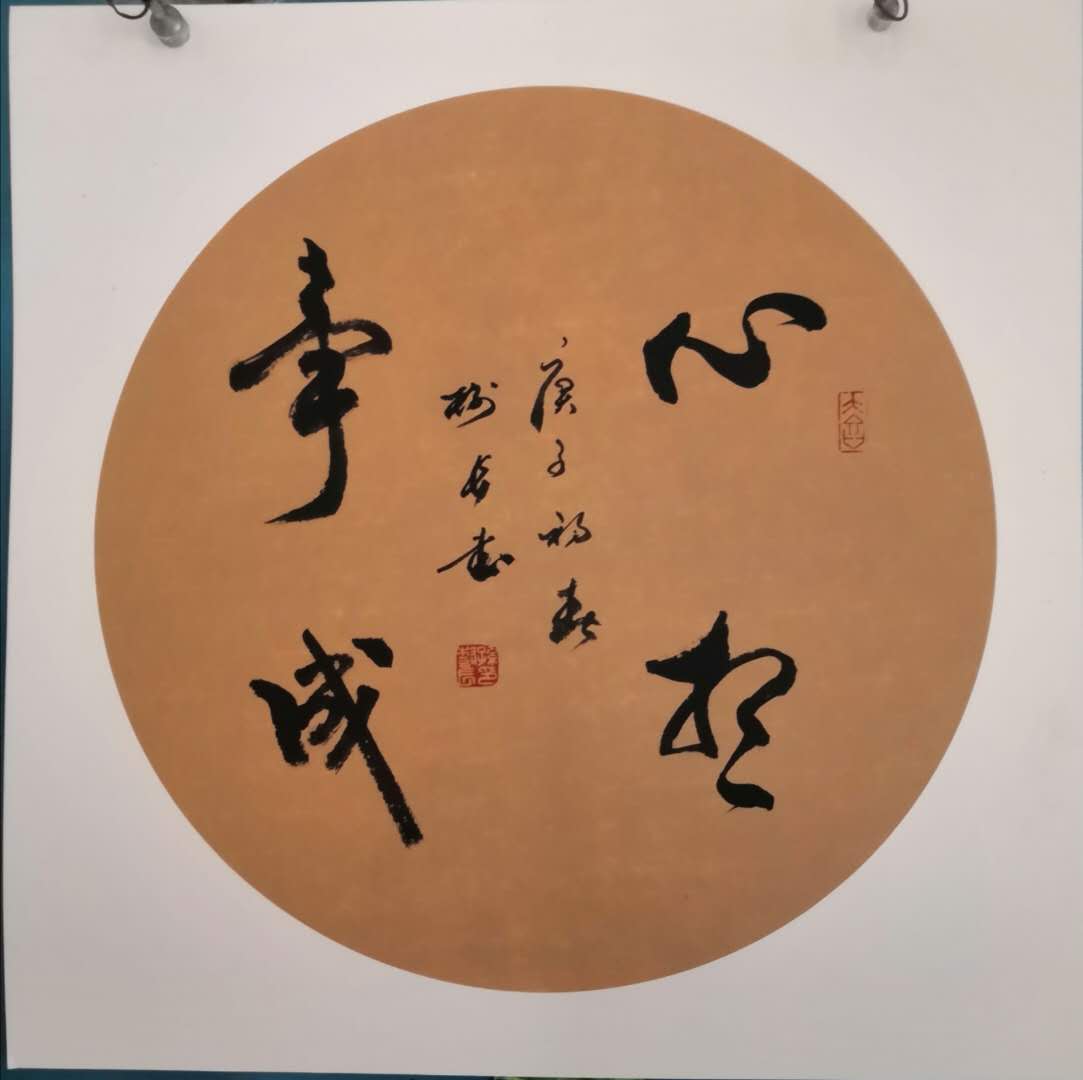 心想
事成
庚子初春
树长书